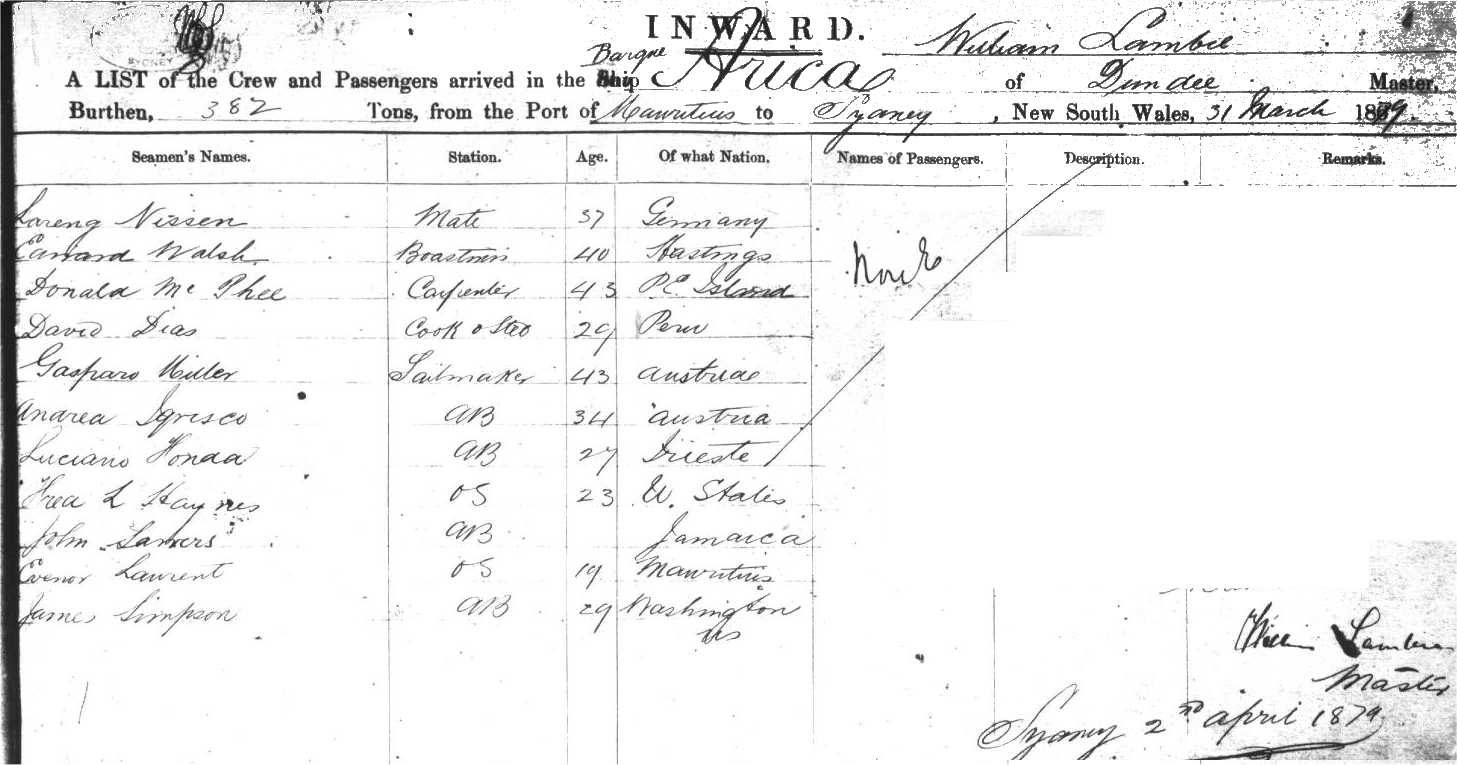 SYDNEY
INWARD.
William Lambie
Barque
A LIST of the Crew and Passengers arrived in the Ship Arica of Dundee Master,
Burthen, 382 Tons, from the Port of Mauritius to Sydney, New South Wales, 31 March 1879
Seamen's Names. Station. Age. Of what Nation. Names of Passengers. Description. Remarks.
Lareng Nissen Mate 37 Germany
Edward Walsh Boatswain 40 Hastings
None
Donald Mc Phee Carpenter 43 P.E. Island
David Dias Cook & Std 29 Peru
Gasparo Miller Sailmaker 43 Austria
Andrea Sgrisco AB 34 Austria
Luciano Honda AB 27 Trieste
Fred L Haynes OS 23 U. States
John AB Jamaica
Evenor Laurent OS 19 Mauritius
James Simpson AB 29 Washington
US
William Lambie
Master
Sydney 2nd April 1879